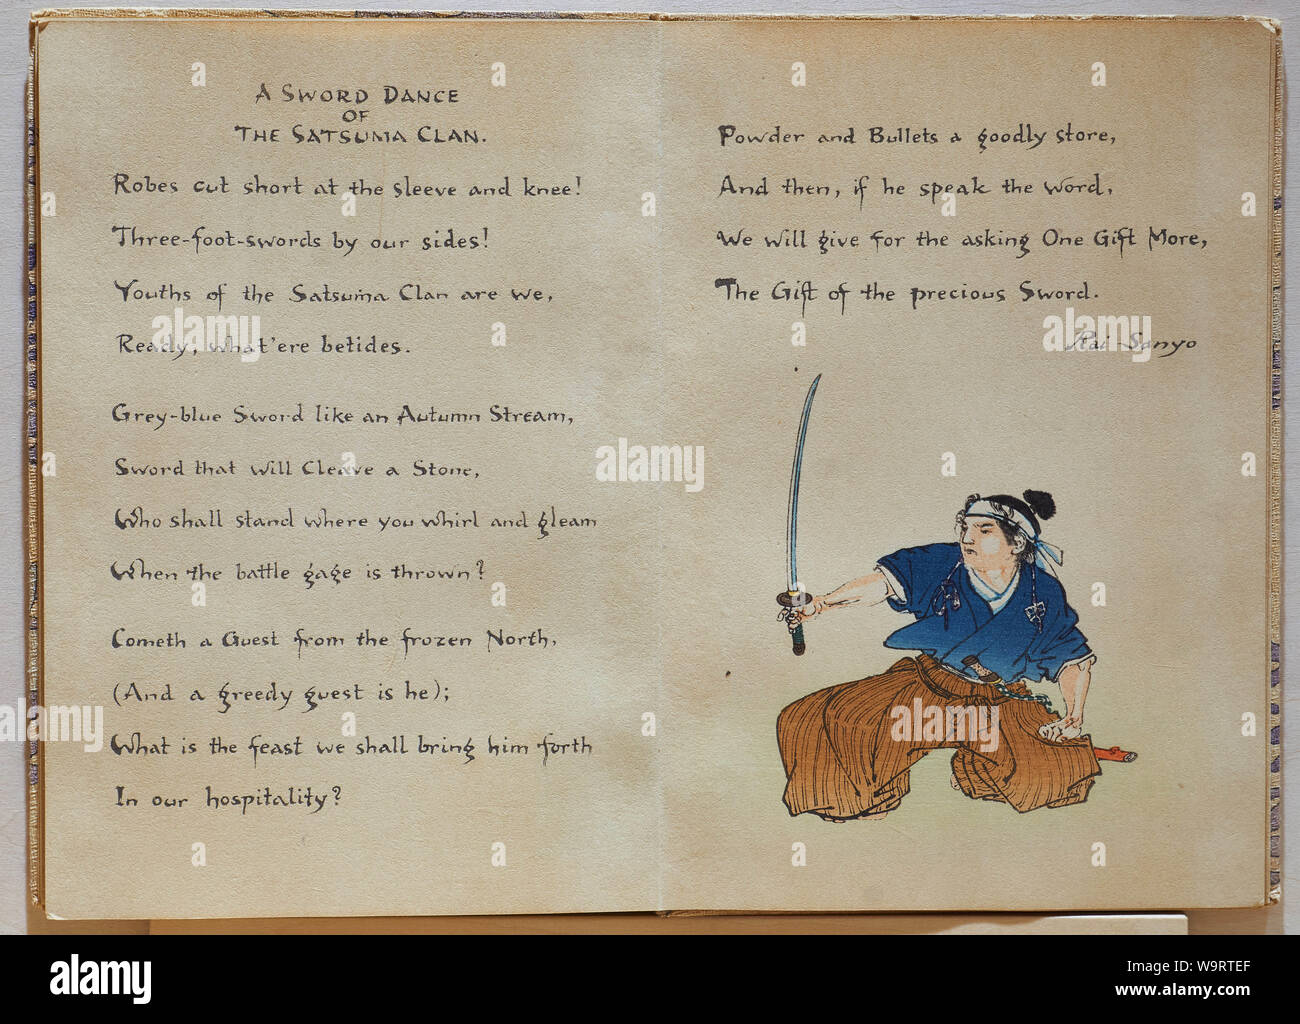 A SWORD DANCE
OF
THE SATSUMA CLAN.
Robes cut short at the sleeve and knee!
Three-foot-swords by our sides!
Youths of the Satsuma Clan are we,
Ready, what'ere betides.
Grey-blue Sword like an Autumn Stream,
Sword that will Cleave a Stone,
Who shall stand where you whirl and gleam
When the battle gage is thrown?
Cometh a Guest from the frozen North,
(And a greedy guest is he);
What is the feast we shall bring him forth
In our hospitality?
Powder and Bullets a goodly store,
And then, if he speak the word,
We will give for the asking One Gift More,
The Gift of the precious Sword.
Rai-Sanyo
alamy
alamy
alamy
alamy
alamy
alamy
alamy
Image ID: W9RTEF
www.alamy.com